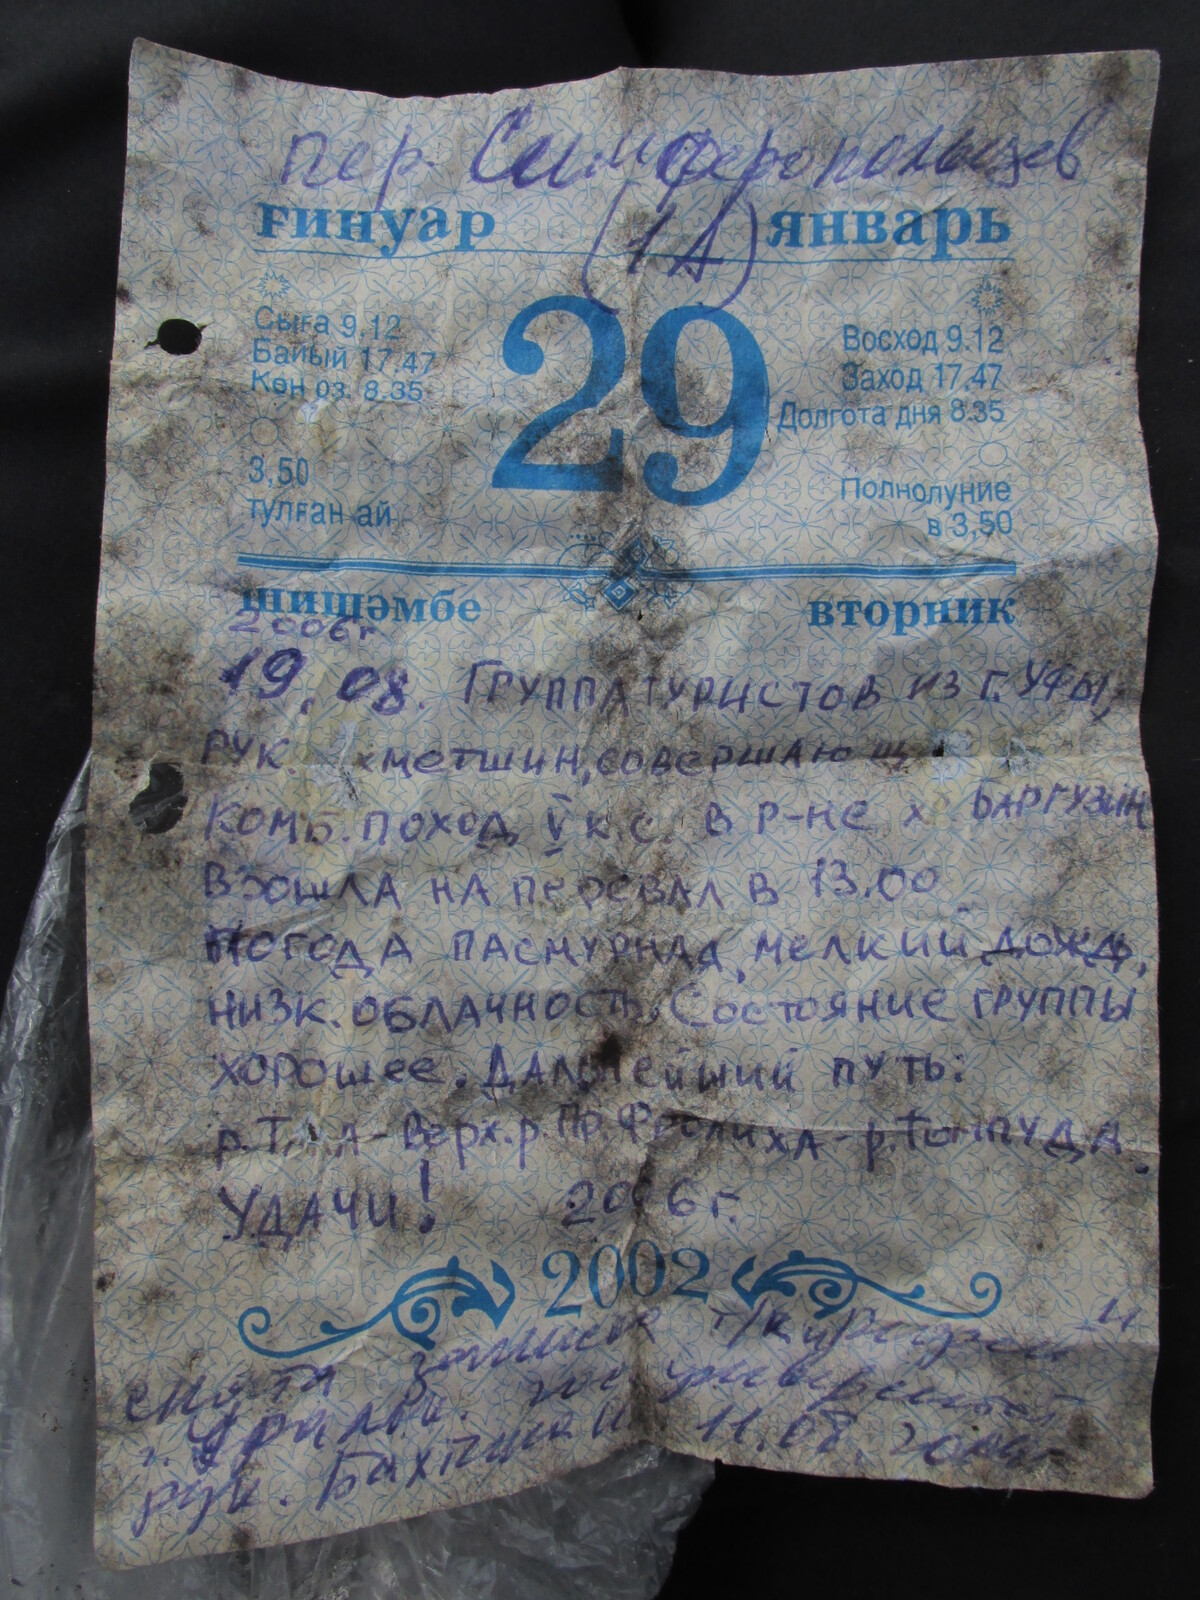 пер. Симферопольцев
ғинуар (1А) январь
29
Сыға 9.12
Байый 17.47
Көн оз. 8.35
3,50
тулған ай
Восход 9.12
Заход 17.47
Долгота дня 8.35
Полнолуние
в 3,50
шишәмбе вторник
2006г
19.08. Группа туристов из г. Уфы,
рук. хметшин, совершающ
комб. поход V к.с. в р-не х Баргузин
взошла на перевал в 13.00
Погода пасмурная, мелкий дождь,
низк. облачность. Состояние группы
хорошее. Дальнейший путь:
р. Верх. р. Пр. Фролиха - р. Томпуда.
Удачи! 2006г.
2002
снята записка т/к
гос университет
рук. 11.08.